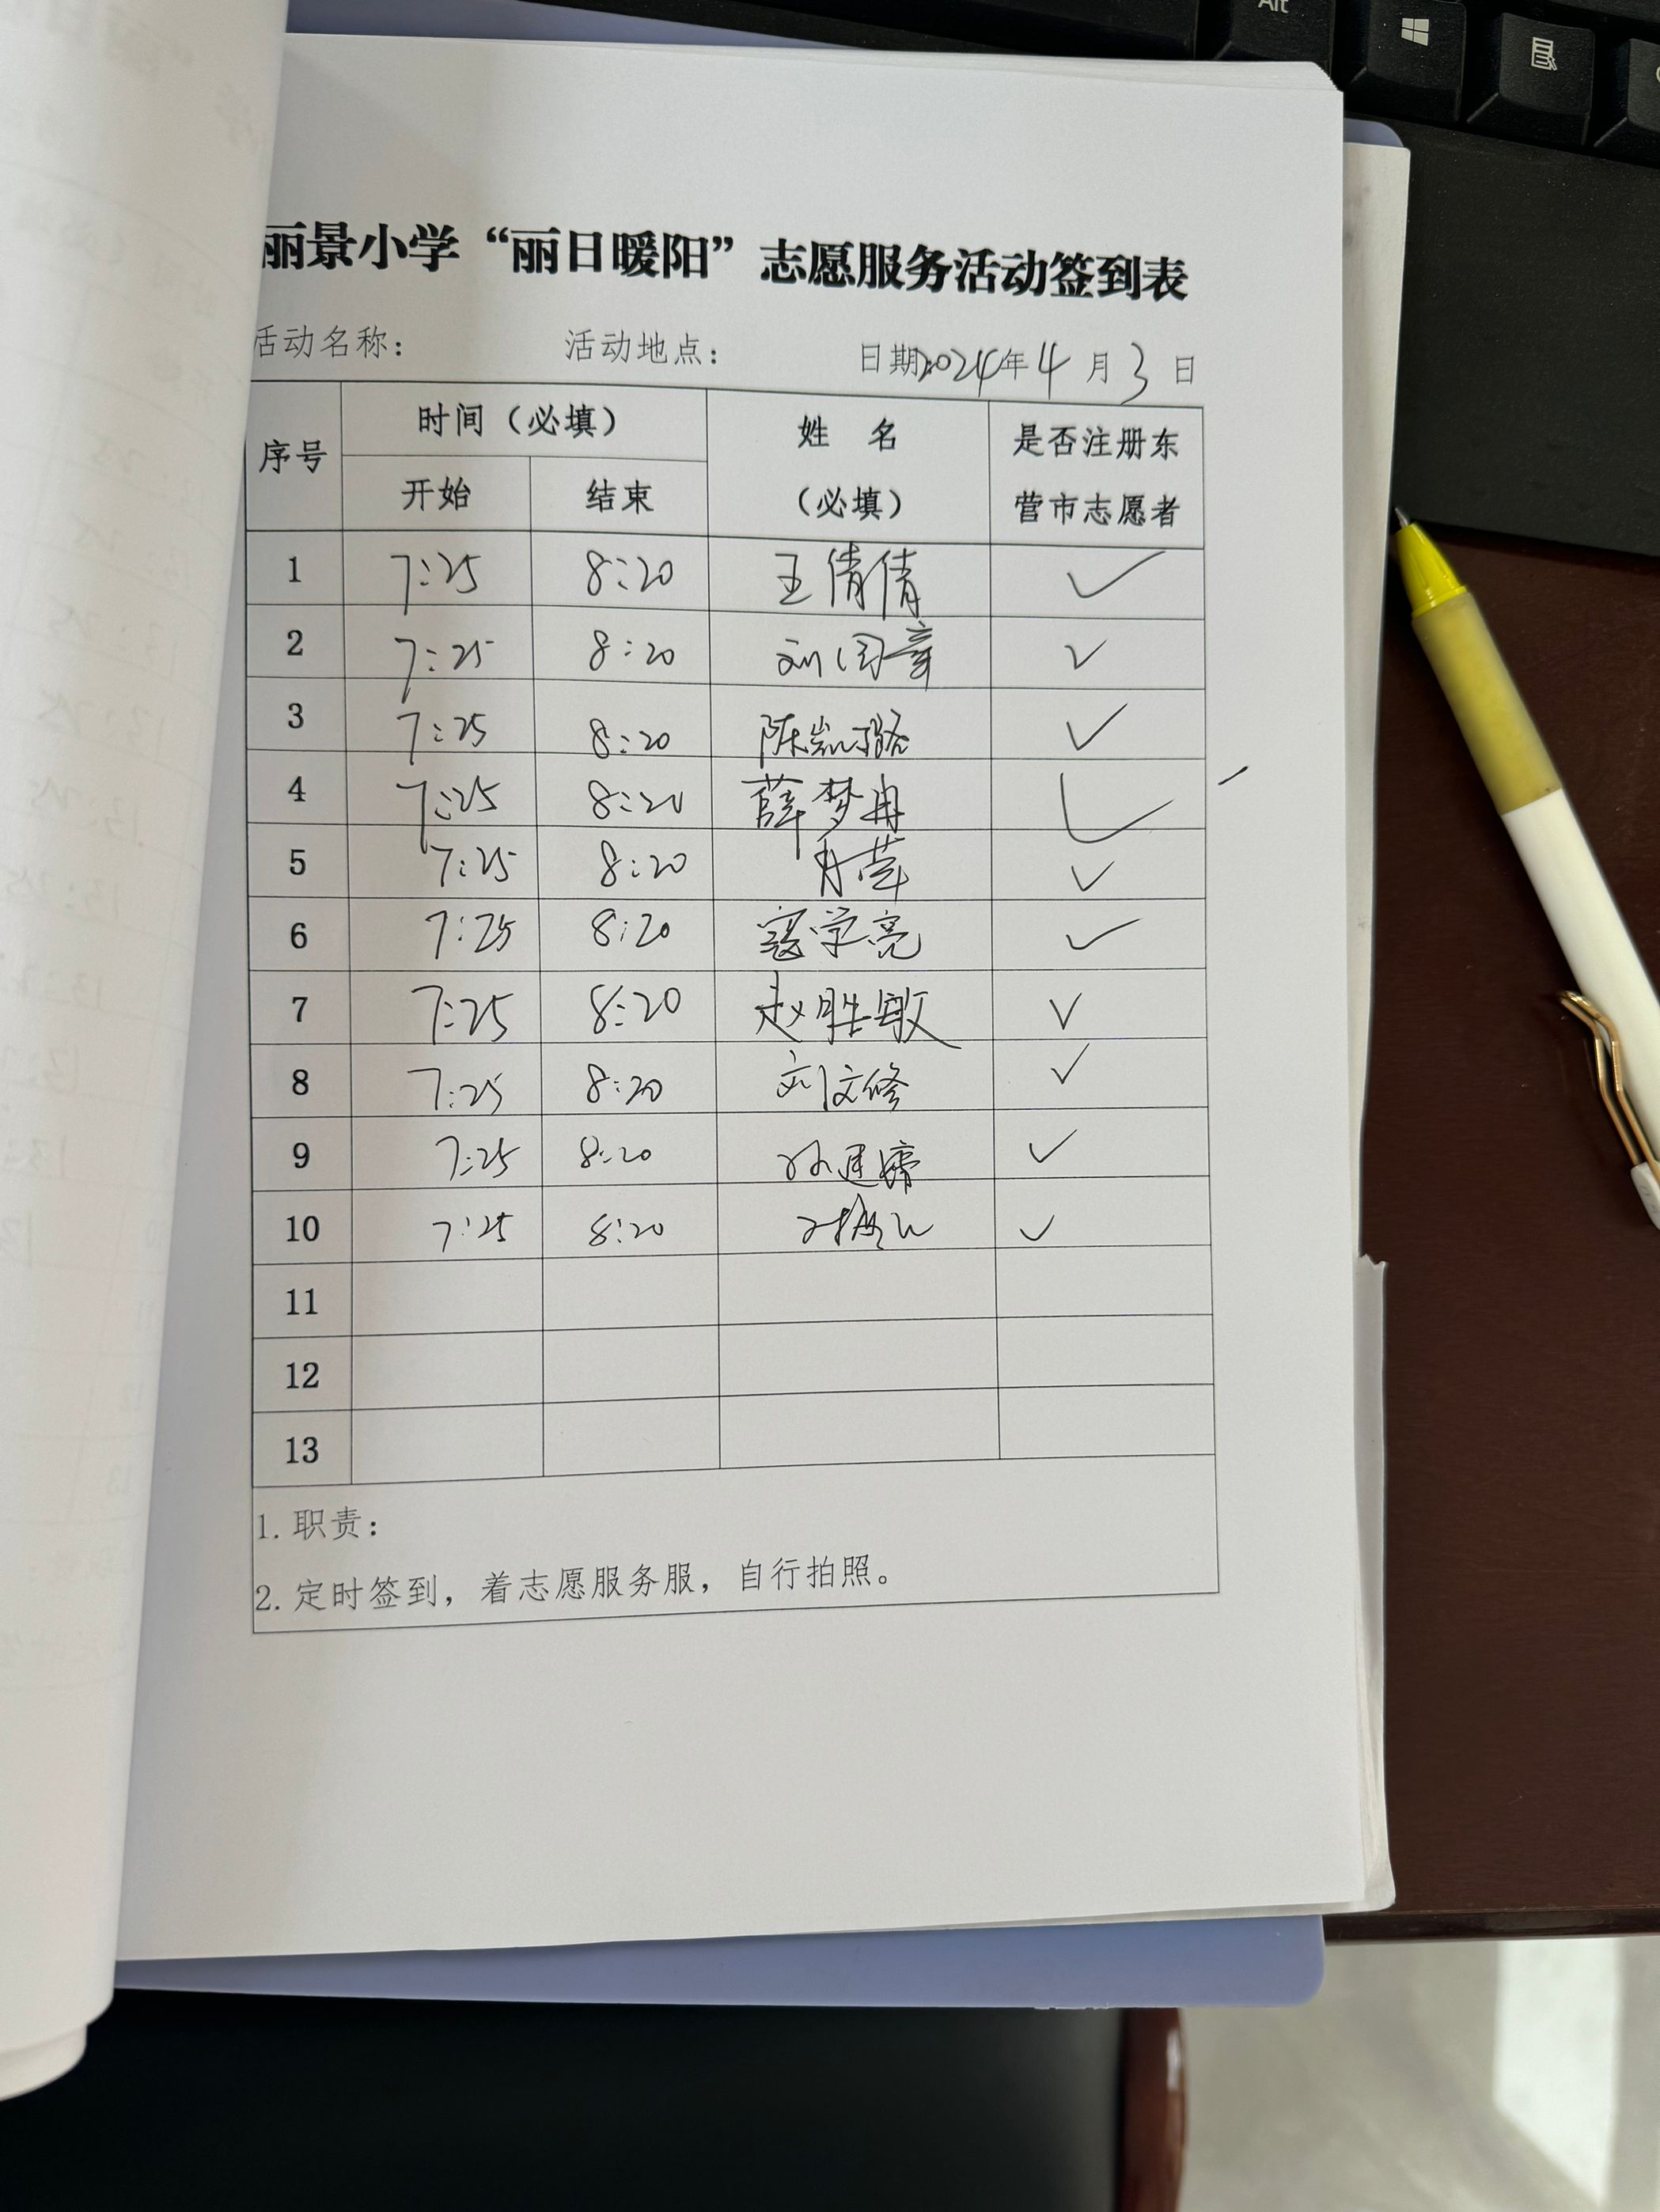 丽景小学“丽日暖阳”志愿服务活动签到表
活动名称： 活动地点： 日期：2024年4月3日
序号 时间（必填） 姓 名（必填） 是否注册东营市志愿者
开始 结束
1 7:25 8:20 王倩倩 ✓
2 7:25 8:20 刘国章 ✓
3 7:25 8:20 陈凯璐 ✓
4 7:25 8:20 薛梦冉 ✓
5 7:25 8:20 ✓
6 7:25 8:20 寇学亮 ✓
7 7:25 8:20 赵胜敏 ✓
8 7:25 8:20 刘文修 ✓
9 7:25 8:20 孙建 ✓
10 7:25 8:20 ✓
11
12
13
1. 职责：
2. 定时签到，着志愿服务服，自行拍照。
Alt